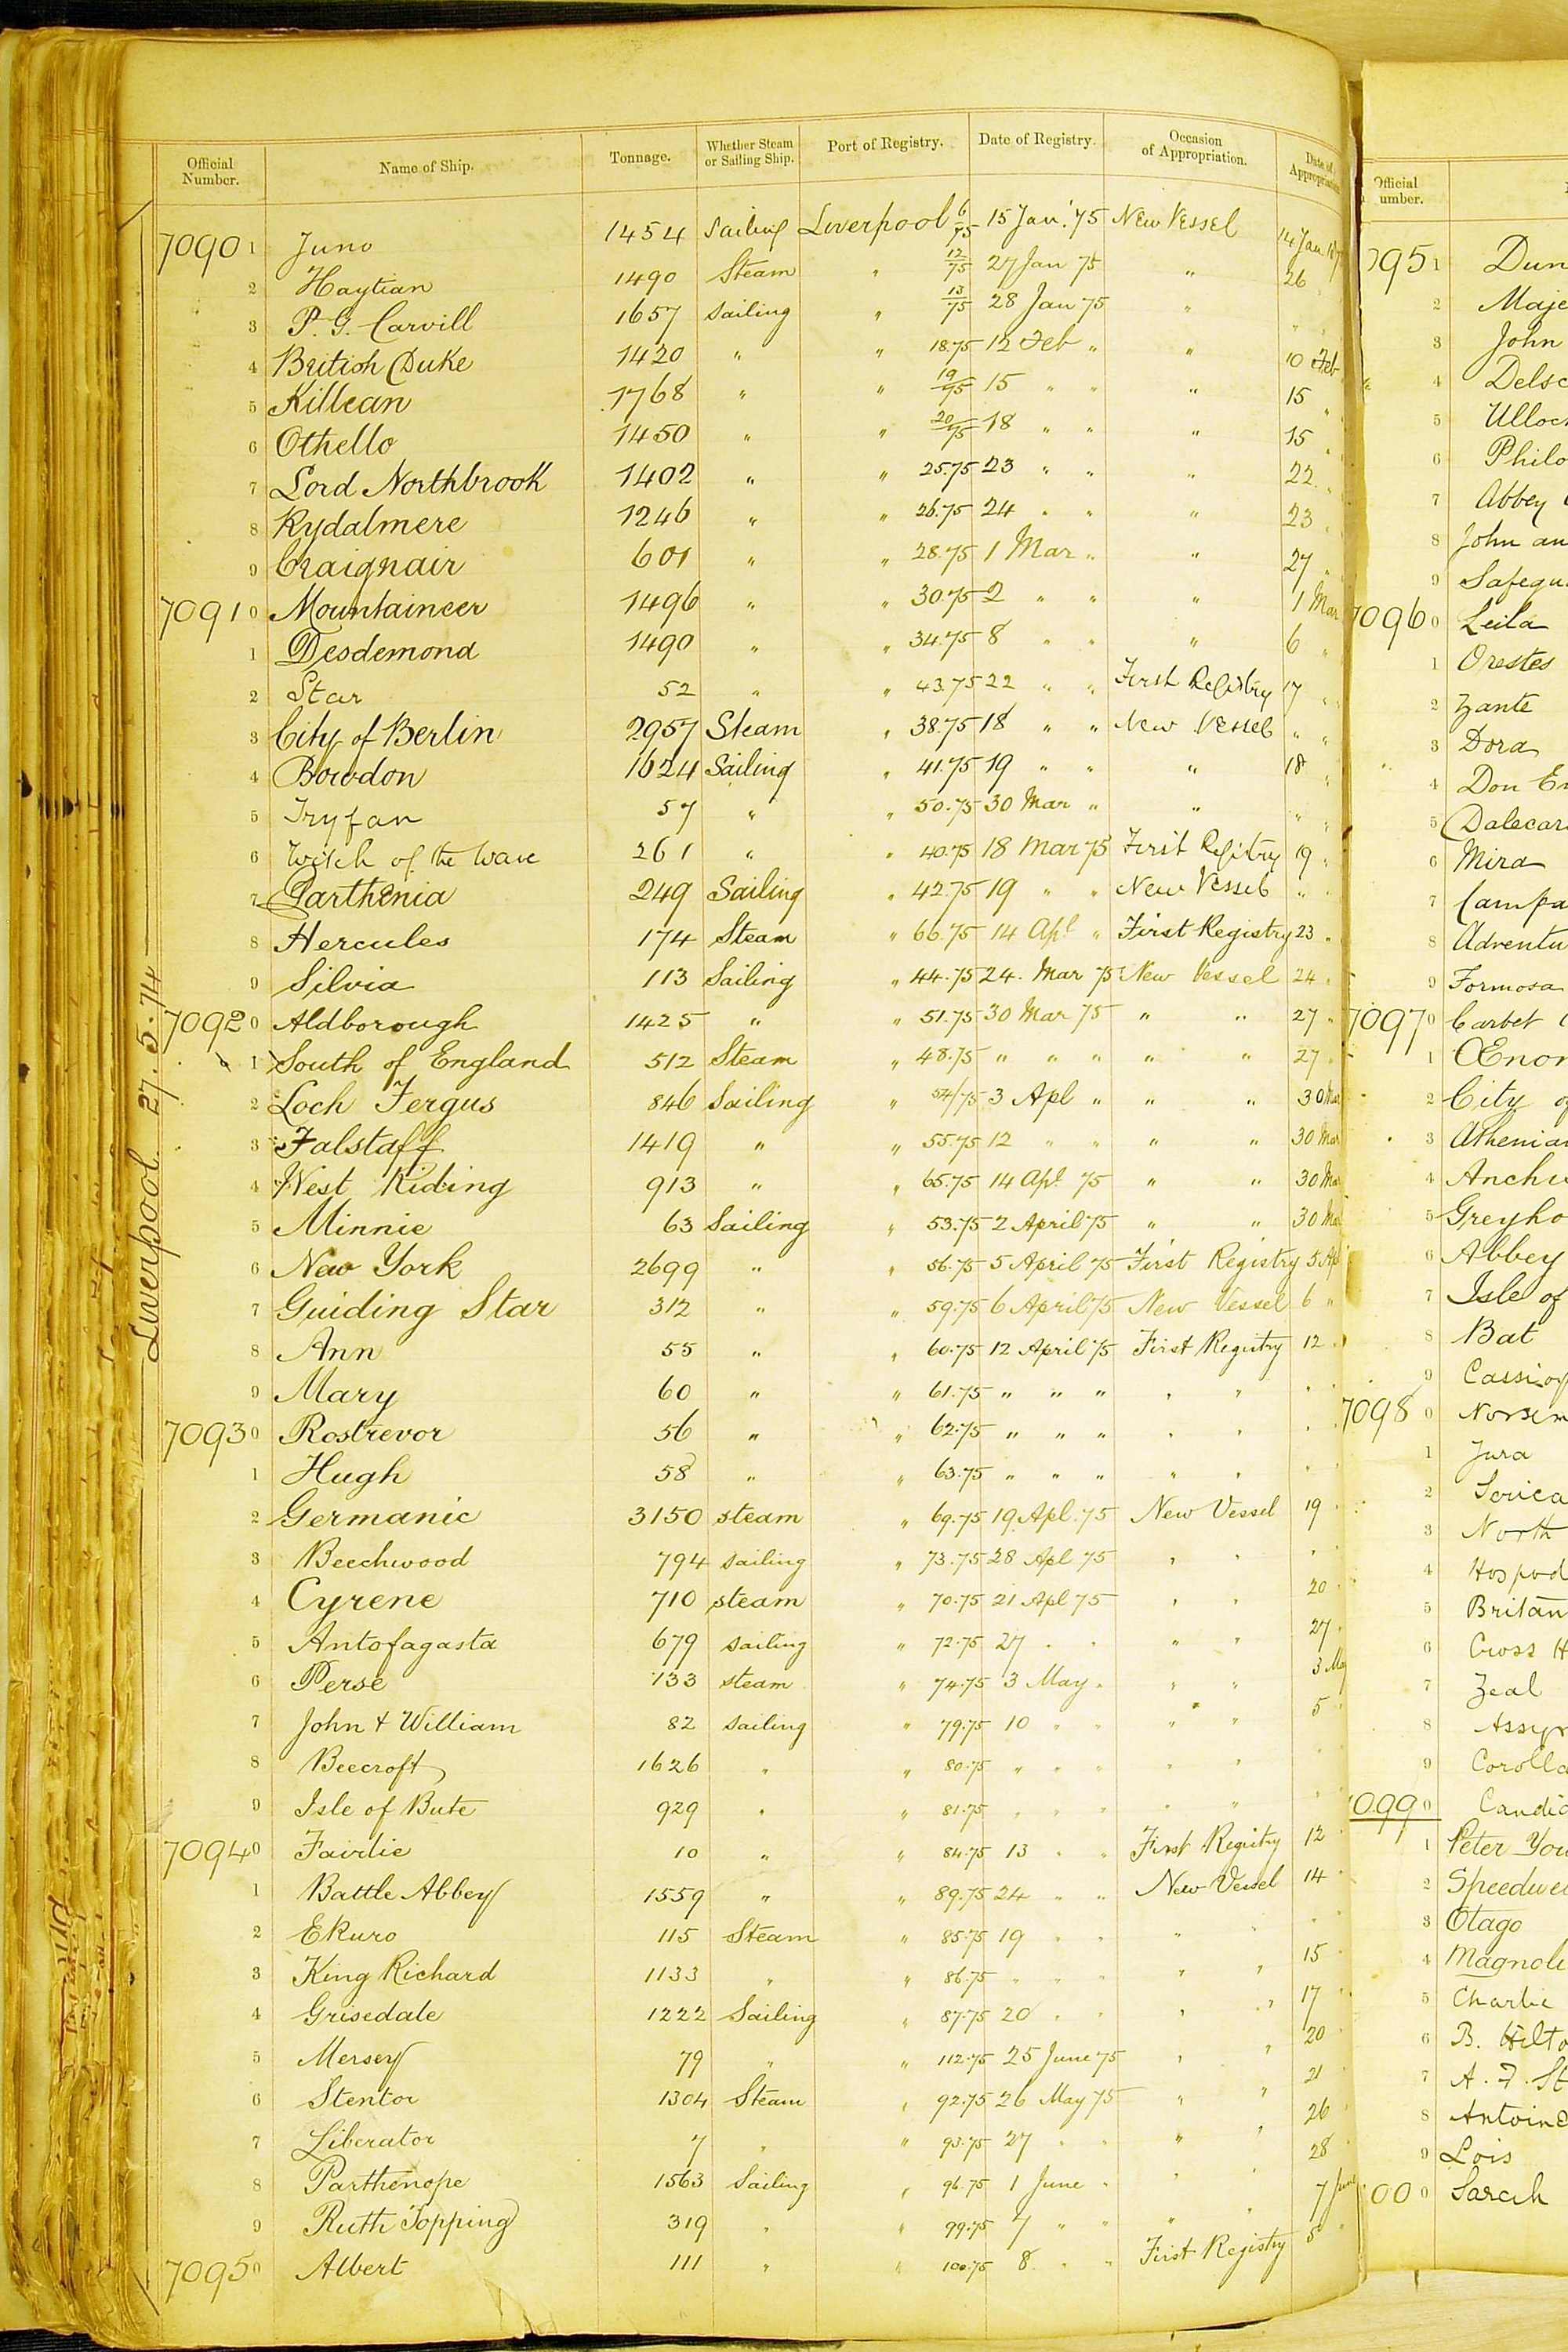 Official Number. Name of Ship. Tonnage. Whether Steam or Sailing Ship. Port of Registry. Date of Registry. Occasion of Appropriation. Date of Appropriation
70901 Juno 1454 Sailing Liverpool 6/75 15 Jan. 75 New Vessel 14 Jan
2 Haytian 1490 Steam " 12/75 27 Jan 75 " 26 "
3 P. G. Carvill 1657 Sailing " 13/75 28 Jan 75 " " "
4 British Duke 1420 " " 18.75 12 Feb " " 10 Feb
5 Killean 1768 " " 19/75 15 " " " 15 "
6 Othello 1450 " " 20/75 18 " " " 15 "
7 Lord Northbrook 1402 " " 25.75 23 " " " 22 "
8 Rydalmere 1246 " " 26.75 24 " " " 23 "
9 Craignair 601 " " 28.75 1 Mar " " 27 "
70910 Mountaineer 1496 " " 30.75 2 " " " 1 Mar
1 Desdemond 1490 " " 34.75 8 " " " 6 "
2 Star 52 " " 43.75 22 " " First Registry 17 "
3 City of Berlin 2957 Steam " 38.75 18 " " New Vessel " "
4 Bowdon 1624 Sailing " 41.75 19 " " " 18 "
5 Tryfan 57 " " 50.75 30 Mar " " " "
6 Witch of the Wave 261 " " 40.75 18 Mar 75 First Registry 19 "
7 Parthenia 249 Sailing " 42.75 19 " " New Vessel " "
8 Hercules 174 Steam " 66.75 14 Apl " First Registry 23 "
9 Silvia 113 Sailing " 44.75 24. Mar 75 New Vessel 24 "
70920 Aldborough 1425 " " 51.75 30 Mar 75 " " 27 "
1 South of England 512 Steam " 48.75 " " " " " 27 "
2 Loch Fergus 846 Sailing " 54/75 3 Apl " " " 30 Mar
3 Falstaff 1419 " " 55.75 12 " " " " 30 Mar
4 West Riding 913 " " 65.75 14 Apl 75 " " 30 Mar
5 Minnie 63 Sailing " 53.75 2 April 75 " " 30 Mar
6 New York 2699 " " 56.75 5 April 75 First Registry 5 Ap
7 Guiding Star 312 " " 59.75 6 April 75 New Vessel 6 "
8 Ann 55 " " 60.75 12 April 75 First Registry 12 "
9 Mary 60 " " 61.75 " " " " " " "
70930 Rostrevor 56 " " 62.75 " " " " " " "
1 Hugh 58 " " 63.75 " " " " " " "
2 Germanic 3150 steam " 69.75 19 Apl. 75 New Vessel 19 "
3 Beechwood 794 sailing " 73.75 28 Apl 75 " " " "
4 Cyrene 710 steam " 70.75 21 Apl 75 " " 20 "
5 Antofagasta 679 sailing " 72.75 27 " " " " 27 "
6 Perse 133 steam " 74.75 3 May " " " 3 May
7 John & William 82 sailing " 79.75 10 " " " " 5 "
8 Beecroft 1626 " " 80.75 " " " " " " "
9 Isle of Bute 929 " " 81.75 " " " " " " "
70940 Fairlie 10 " " 84.75 13 " " First Registry 12 "
1 Battle Abbey 1559 " " 89.75 24 " " New Vessel 14 "
2 Ekuro 115 Steam " 85.75 19 " " " " " "
3 King Richard 1133 " " 86.75 " " " " " 15 "
4 Grisedale 1222 Sailing " 87.75 20 " " " " 17 "
5 Mersey 79 " " 112.75 25 June 75 " " 20 "
6 Stentor 1304 Steam " 92.75 26 May 75 " " 21 "
7 Liberator 7 " " 93.75 27 " " " " 26 "
8 Parthenope 1563 Sailing " 96.75 1 June " " " 28 "
9 Ruth Topping 319 " " 99.75 7 " " " " 7 June
70950 Albert 111 " " 100.75 8 " " First Registry 8 "
Liverpool 27.5.74
Official umber.
0951 Dun
2 Maje
3 John
4 Delsc
5 Ulloc
6 Philo
7 Abbey
8 John an
9 Safegu
70960 Leila
1 Orestes
2 Zante
3 Dora
4 Don En
5 Dalecar
6 Mira
7 Campa
8 Adventu
9 Formosa
70970 Corbet
1 Œnon
2 City of
3 Athenian
4 Anchi
5 Greyho
6 Abbey
7 Isle of
8 Bat
9 Cassiop
70980 Norsem
1 Jura
2 Sorica
3 North
4 Hospod
5 Britan
6 Cross H
7 Zeal
8 Assyr
9 Corolla
0990 Candid
1 Peter You
2 Speedwe
3 Otago
4 Magnoli
5 Charlie
6 B. Hilto
7 A. F. St
8 Antoine
9 Lois
000 Sarah